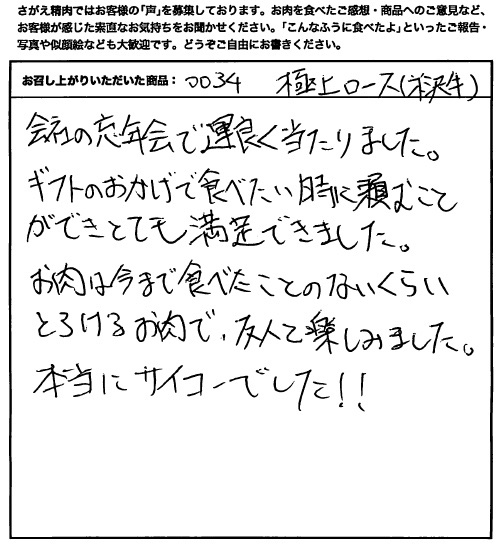 さがえ精肉ではお客様の「声」を募集しております。お肉を食べたご感想・商品へのご意見など、
お客様が感じた素直なお気持ちをお聞かせください。「こんなふうに食べたよ」といったご報告・
写真や似顔絵なども大歓迎です。どうぞご自由にお書きください。
お召し上がりいただいた商品： 0034 極上ロース(米沢牛)
会社の忘年会で運良く当たりました。
ギフトのおかげで食べたい時に頼むこと
ができとても満足できました。
お肉は今まで食べたことのないくらい
とろけるお肉で、友人と楽しみました。
本当にサイコーでした!!